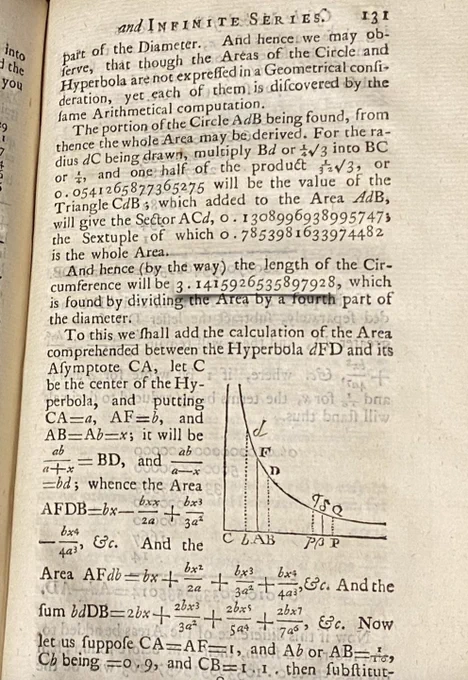 and INFINITE SERIES. 131
part of the Diameter. And hence we may ob-
ſerve, that though the Areas of the Circle and
Hyperbola are not expreſſed in a Geometrical conſi-
deration, yet each of them is diſcovered by the
ſame Arithmetical computation.
The portion of the Circle AdB being found, from
thence the whole Area may be derived. For the ra-
dius dC being drawn, multiply Bd or ¼√3 into BC
or ¼, and one half of the product 1/32√3, or
0.0541265877365275 will be the value of the
Triangle CdB; which added to the Area AdB,
will give the Sector ACd, 0.1308996938995747;
the Sextuple of which 0.7853981633974482
is the whole Area.
And hence (by the way) the length of the Cir-
cumference will be 3.1415926535897928, which
is found by dividing the Area by a fourth part of
the diameter.
To this we ſhall add the calculation of the Area
comprehended between the Hyperbola dFD and its
Aſymptote CA, let C
be the center of the Hy-
perbola, and putting
CA=a, AF=b, and
AB=Ab=x; it will be
ab/a+x = BD, and ab/a−x
=bd; whence the Area
AFDB=bx− bxx/2a + bx3/3a²
− bx4/4a³, &c. And the
d
F
D
Q
C b A B P
Area AFdb=bx+ bx²/2a + bx3/3a² + bx4/4a³, &c. And the
ſum bdDB=2bx+ 2bx3/3a² + 2bx5/5a4 + 2bx7/7a6, &c. Now
let us ſuppoſe CA=AF=1, and Ab or AB=1/10,
Cb being =0.9, and CB=1.1. then ſubſtitut-